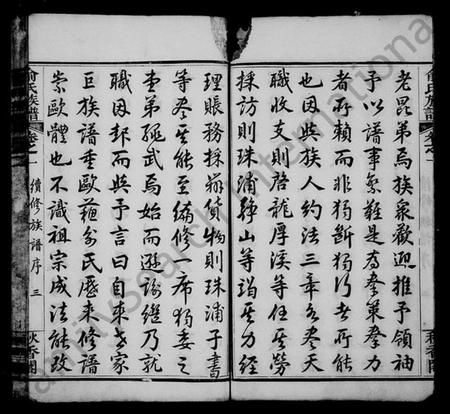 老昆弟焉族衆歡迎推予領袖
予以譜事繁難是為羣策羣力
者所賴而非獨斷獨行者所能
也因與族人約法三章各盡天
職收支則啓龍厚溪等任其勞
採訪則珠浦静山等竭其力經
理賬務採辦貨物則珠浦子書
等奏其能至編修一席獨委之
堂弟繩武焉始而遜謝繼乃就
職因起而與予言曰自來世家
巨族譜重歐蘓吾氏歷來修譜
崇歐體也不識祖宗成法能改
俞氏族譜
卷一
續修族譜序
三
秋香閣
俞氏族譜
卷之一
秋香閣
FamilySearch International